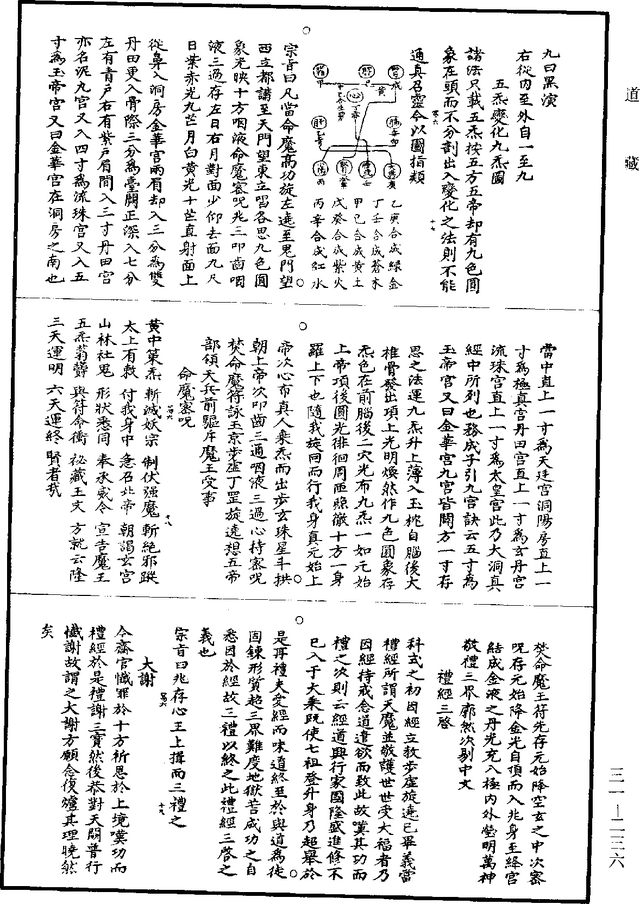 道藏
九曰黑演
右從内至外自一至九
五炁變化九炁圖
諸法只載五炁按五方五帝却有九色圓
象在頭而不分割出入變化之法則不能
通真召靈今以圖指類
乙庚合成綠金
丁壬合成蒼木
甲己合成黄土
戊癸合成紫火
丙辛合成紅水
宗旨曰凡當命魔高功旋左遶至鬼門望
西立都講至天門望東立習各思九色圓
象光映十方咽液命魔密呪兆三叩齒咽
液三過存左日右月對面少仰去面九尺
日紫赤光九芒月白黄光十芒直射面上
從鼻入洞房金華宫兩眉却入三分為雙
丹田更入骨際三分為臺闕正深入七分
左有青户右有紫户眉間入三寸丹田宫
亦名泥丸宫又入四寸為流珠宫又入五
寸為玉帝宫又曰金華宫在洞房之南也
當中直上一寸為天廷宫洞陽房直上一
寸為極真宫丹田宫直上一寸為玄丹宫
流珠宫直上一寸為太皇宫此乃大洞真
經中所列也務成子引九宫訣云五寸為
玉帝宫又曰金華宫九宫皆闊方一寸存
思之法運九炁升上薄入玉枕自腦後大
椎骨發出項上光明煥然作九色圓象存
炁色在前腦後二穴光布九炁一如元始
上帝項後圓光徘徊周匝照徹十方一身
羅上下也隨我旋同而行我身真元始上
帝次心布真人乘炁而出步玄珠星斗拱
朝上帝次叩齒三通咽液三過心持密呪
焚命魔符詠玉京步虚丁罡旋遶想五帝
部領天兵前驅斥魔王受事
命魔密呪
黄中策炁 斬滅妖宗 制伏强魔 斬絶邪蹤
太上有敕 付我身中 急召北帝 朝謁玄宫
山林社鬼 形狀悉同 奉承威令 宣告魔王
五炁菊醉 與符命衝 祕藏玉文 方就云隆
三天運明 六天運終 賢者哉
焚命魔王符先存元始降空玄之中次密
呪存元始降金光自頂而入兆身至絳宫
結成金液之丹光充入極内外瑩明萬神
敬禮三界廓然次剔中文
禮經三啓
科式之初因經立教步虚旋遶已畢義當
禮經所謂天魔並敬護世世受大福者乃
因經持戒念道遣欲而致此故嘆其功而
禮之次則云經道興行家國隆盛進修不
已入于大乘既使七祖登升身乃超舉於
是再禮夫受經而味道終至於與道為徒
固鍊形質超三界難度地獄苦成功之自
悉因於經故三禮以終之此禮經三啓之
義也
宗旨曰兆存心王上揖而三禮之
大謝
令齋官懺罪於十方祈恩於上境嘆功而
禮經於是禮謝三寶然後恭對天關普行
懺謝故謂之大謝方願念復爐其理曉然
矣
三一—二三六